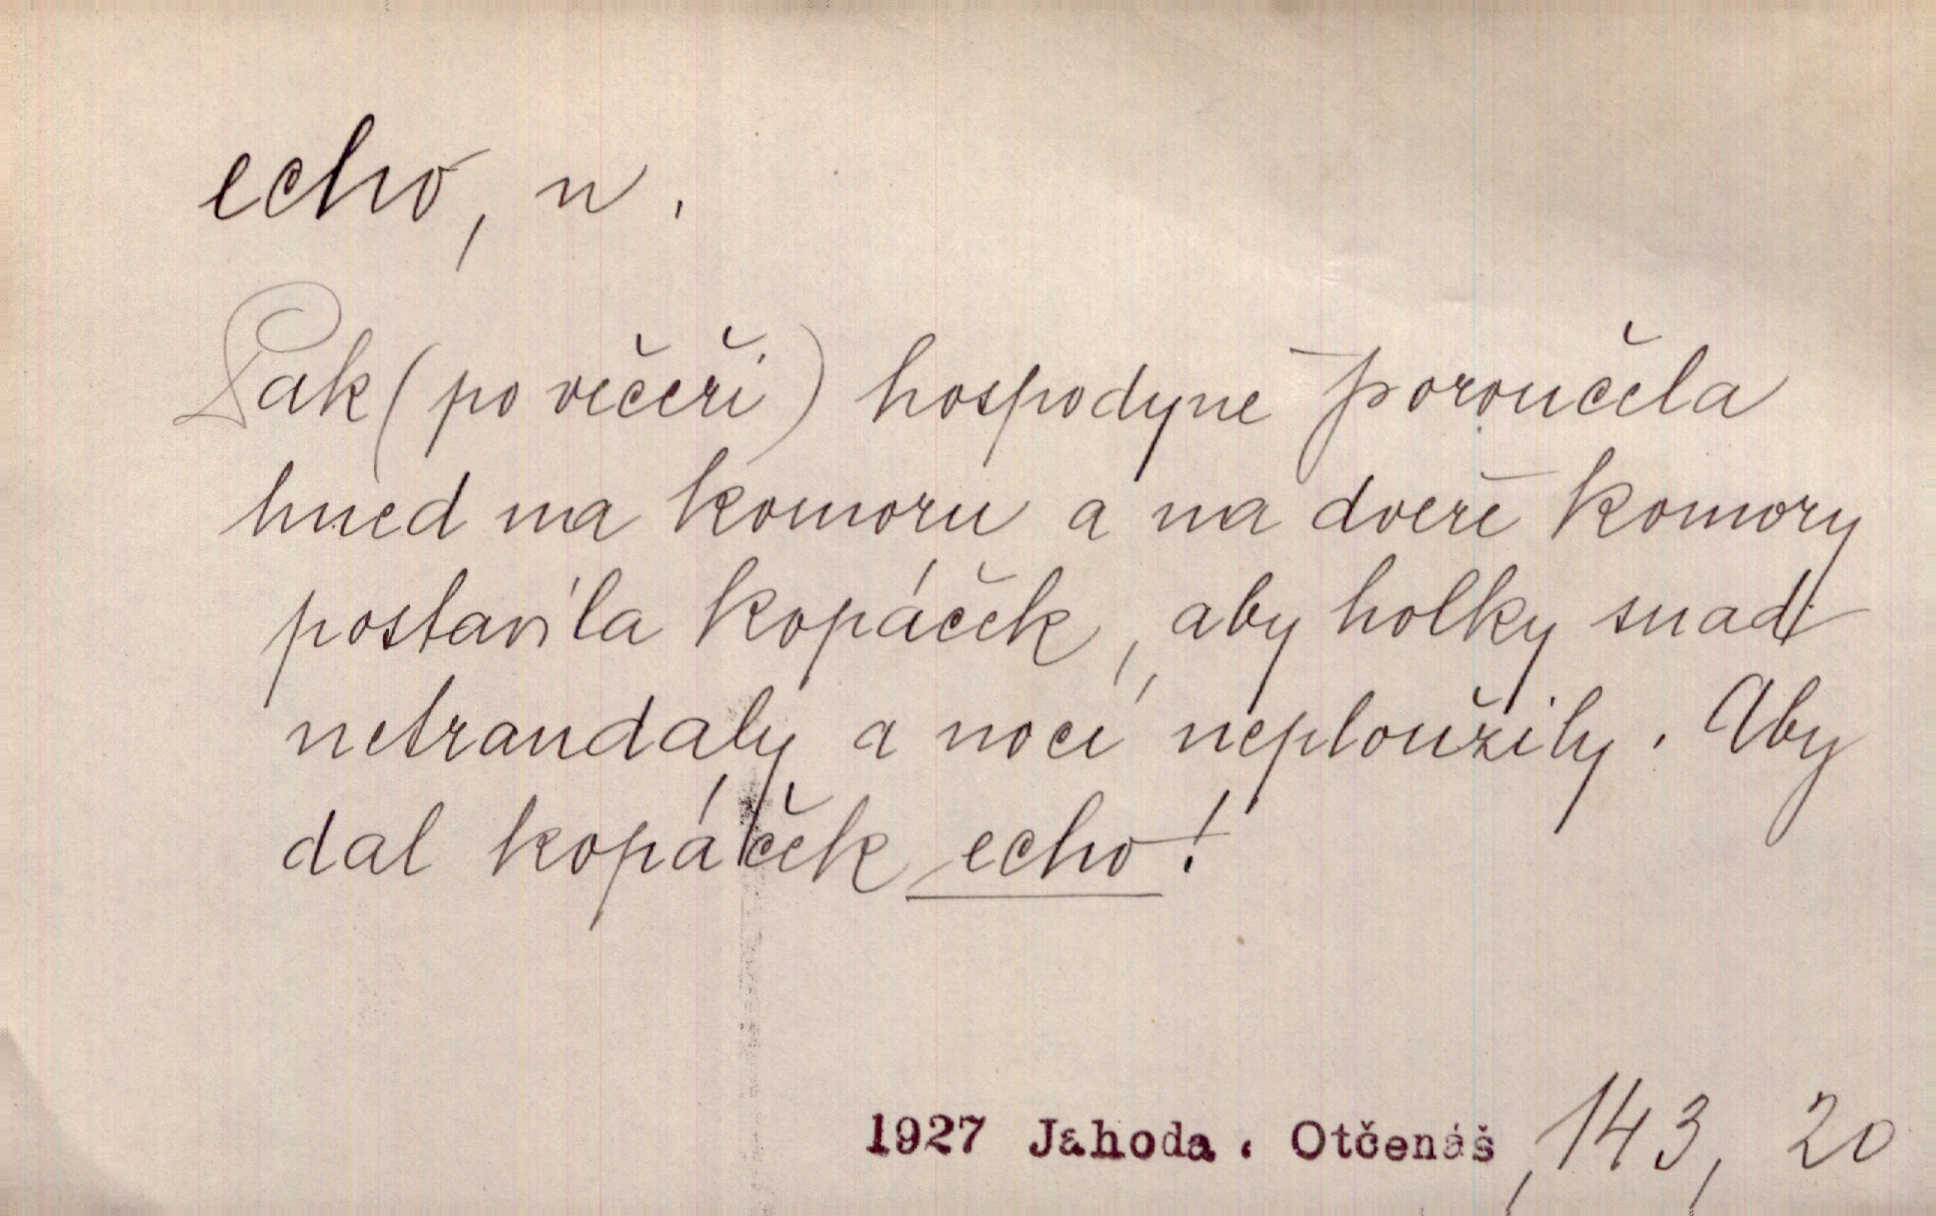 echo, n.
Pak (po večeři) hospodyně poroučela
hned na komoru a na dveře komory
postavila kopáček, aby holky snad
netrandaly a nocí neploužily. Aby
dal kopáček echo!
1927 Jahoda. Otčenáš, 143, 20